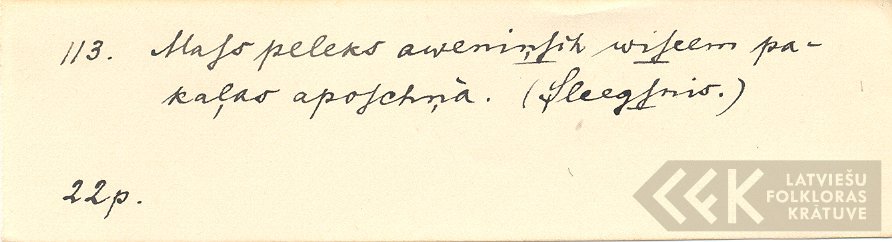 113. Mass peleks aweniņsch wiseem pa-
kaļas aposchņā. (Sleegsnis.)
22p.
LATVIEŠU
FOLKLORAS
KRĀTUVE